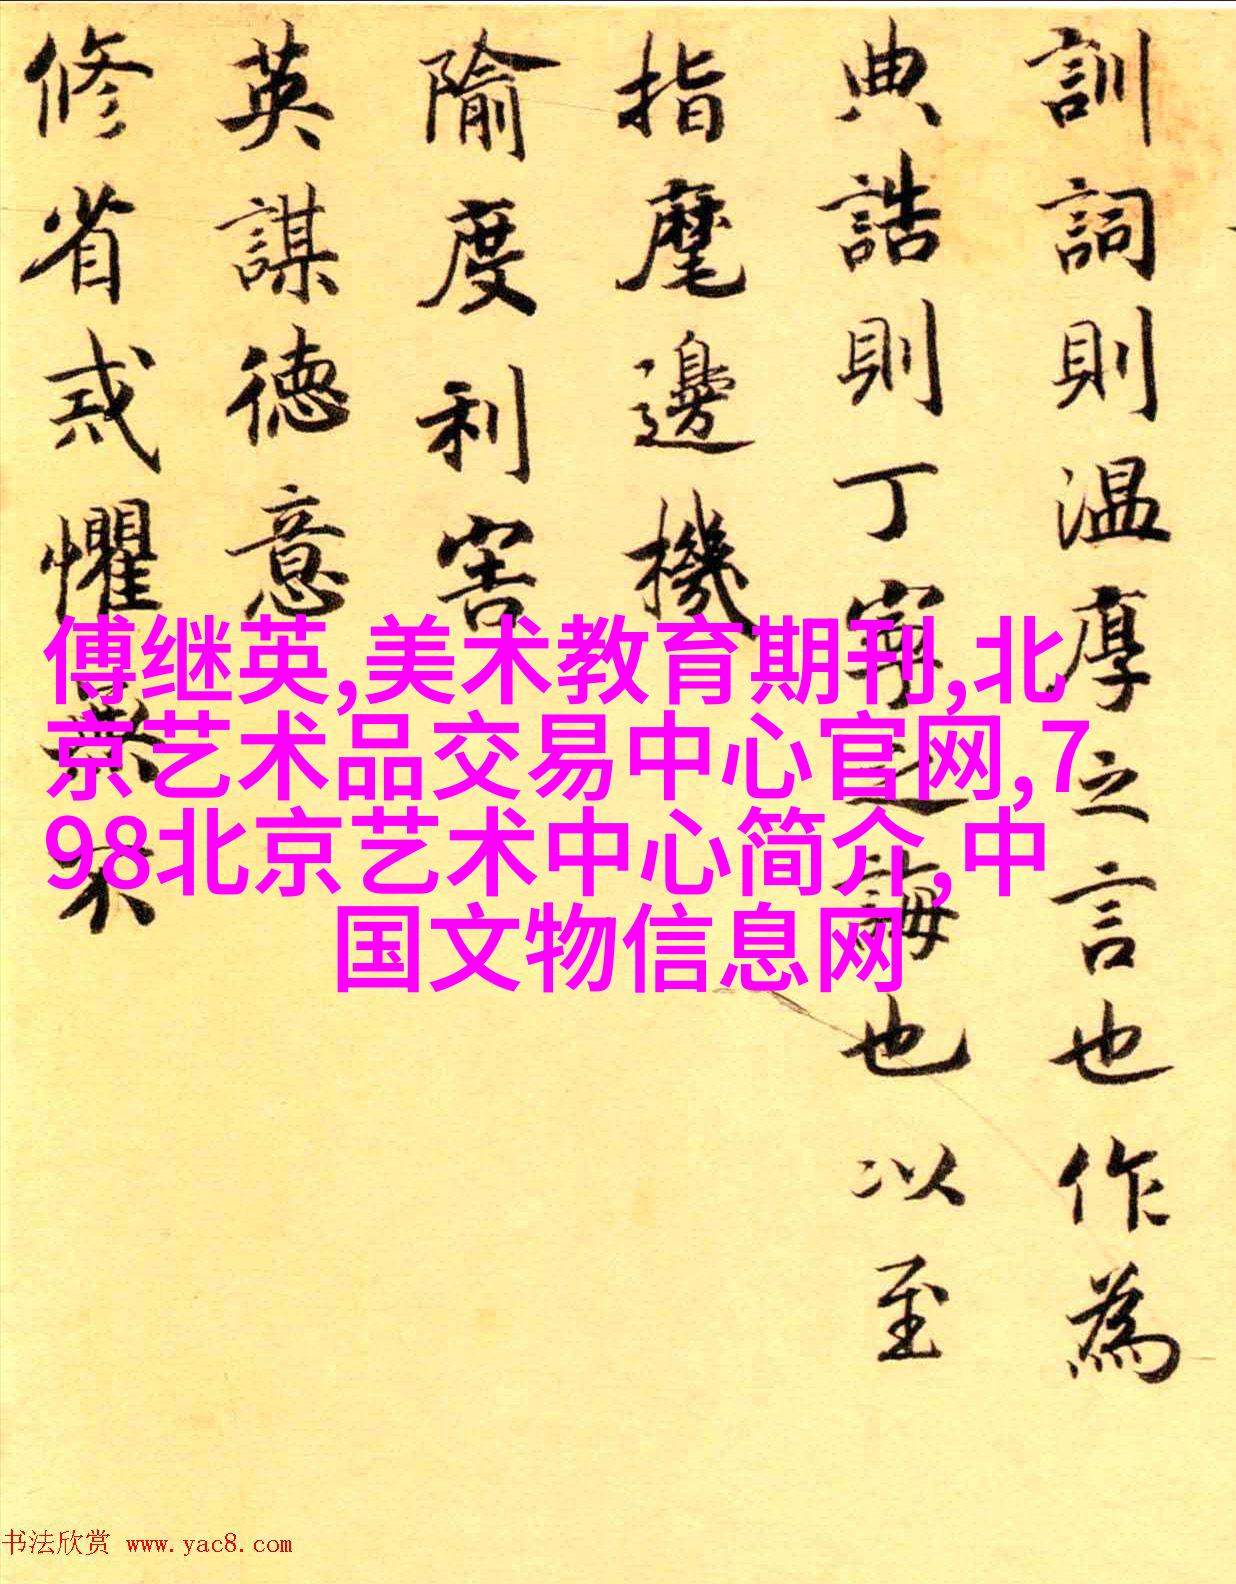 訓詞則温厚之言也作為
典誥則丁寧之誨也以至
指麾邊機
隃度利害
英謀徳意
修省戒懼無不
傅继英,美术教育期刊,北
京艺术品交易中心官网,7
98北京艺术中心简介,中
国文物信息网
书法欣赏 www.yac8.com